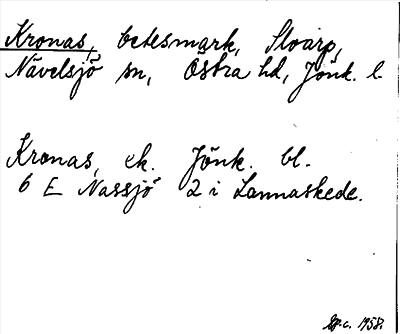 Kronas, betesmark, Sloarp,
Nävelsjö sn, Östra hd, Jönk. l.
Kronas, ek. Jönk. bl.
6 E Nässjö 2 i Lannaskede.
1958.